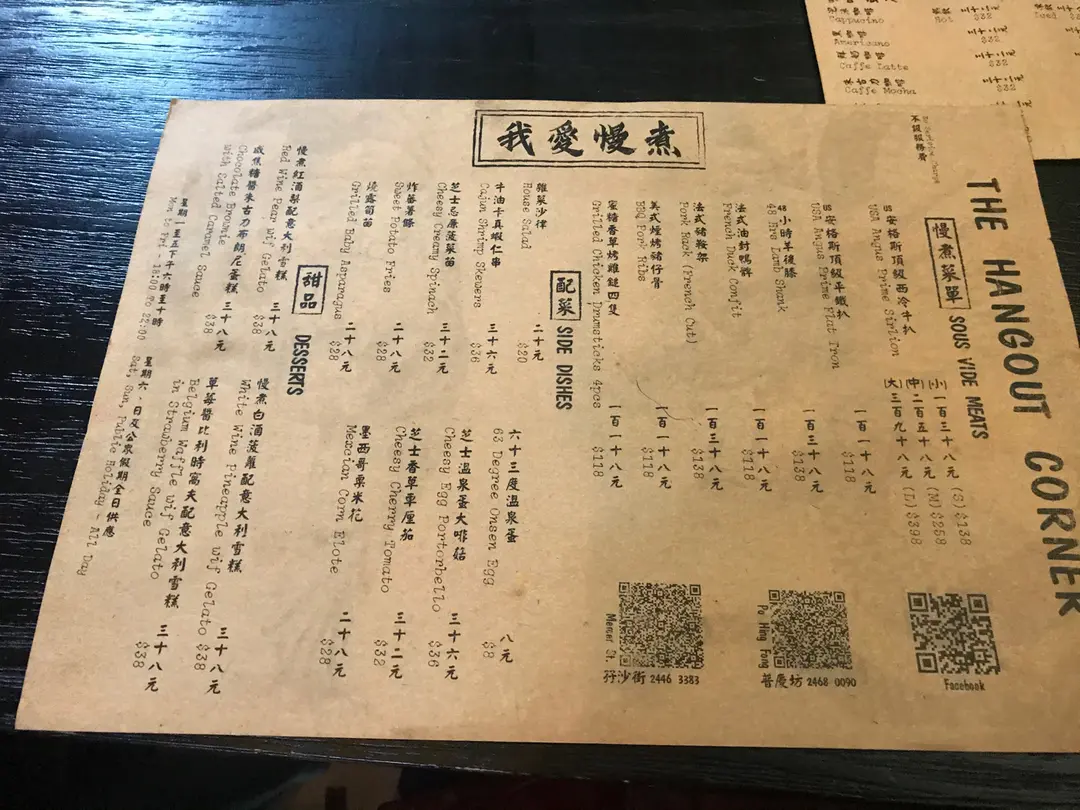 THE HANGOUT CORNER
不設服務費
我愛慢煮
慢煮菜單 SOUS VIDE MEATS
US 安格斯頂級西冷牛扒 (小) 一百三十八元 (S) $138
USA Angus Prime Sirlion (中) 二百五十八元 (M) $258
(大) 三百九十八元 (L) $398
US 安格斯頂級平鐵扒 一百一十八元
USA Angus Prime Flat Iron $118
48 小時羊後膝 一百三十八元
48 Hrs Lamb Shank $138
法式油封鴨髀 一百一十八元
French Duck Confit $118
法式豬鞍架 一百三十八元
Pork Rack (French Cut) $138
美式煙烤豬仔骨 一百一十八元
BBQ Pork Ribs $118
蜜糖香草烤雞鎚四隻 一百一十八元
Grilled Chicken Drumsticks 4pcs $118
Facebook
Po Hing Fong 普慶坊 2468 0090
Mercer St. 孖沙街 2446 3383
配菜 SIDE DISHES
雜菜沙律 二十元
House Salad $20
牛油卡真蝦仁串 三十六元
Cajun Shrimp Skewers $36
芝士忌廉菠菜苗 三十二元
Cheesy Creamy Spinach $32
炸蕃薯條 二十八元
Sweet Potato Fries $28
燒露筍苗 二十八元
Grilled Baby Asparagus $28
六十三度溫泉蛋 八元
63 Degree Onsen Egg $8
芝士溫泉蛋大啡菇 三十六元
Cheesy Egg Portorbello $36
芝士香草車厘茄 三十二元
Cheesy Cherry Tomato $32
墨西哥粟米花 二十八元
Mexcian Corn Elote $28
甜品 DESSERTS
慢煮紅酒梨配意大利雪糕 三十八元
Red Wine Pear Wif Gelato $38
咸焦糖醬朱古力布朗尼蛋糕 三十八元
Chocolate Brownie
with Salted Caramel Sauce $38
慢煮白酒菠蘿配意大利雪糕 三十八元
White Wine Pineapple Wif Gelato $38
草莓醬比利時窩夫配意大利雪糕 三十八元
Belgium Waffle Wif Gelato
in Strawberry Sauce $38
星期一至五下午六時至十時
Mon to Fri - 18:00 To 22:00
星期六、日及公衆假期全日供應
Sat, Sun, Public Holiday - All Day
Cappucino
Hot
三十二元
$32
Iced
Americano
三十二元
$32
Caffe Latte
三十二元
$32
朱古力咖啡
Caffe Mocha
三十二元
$32